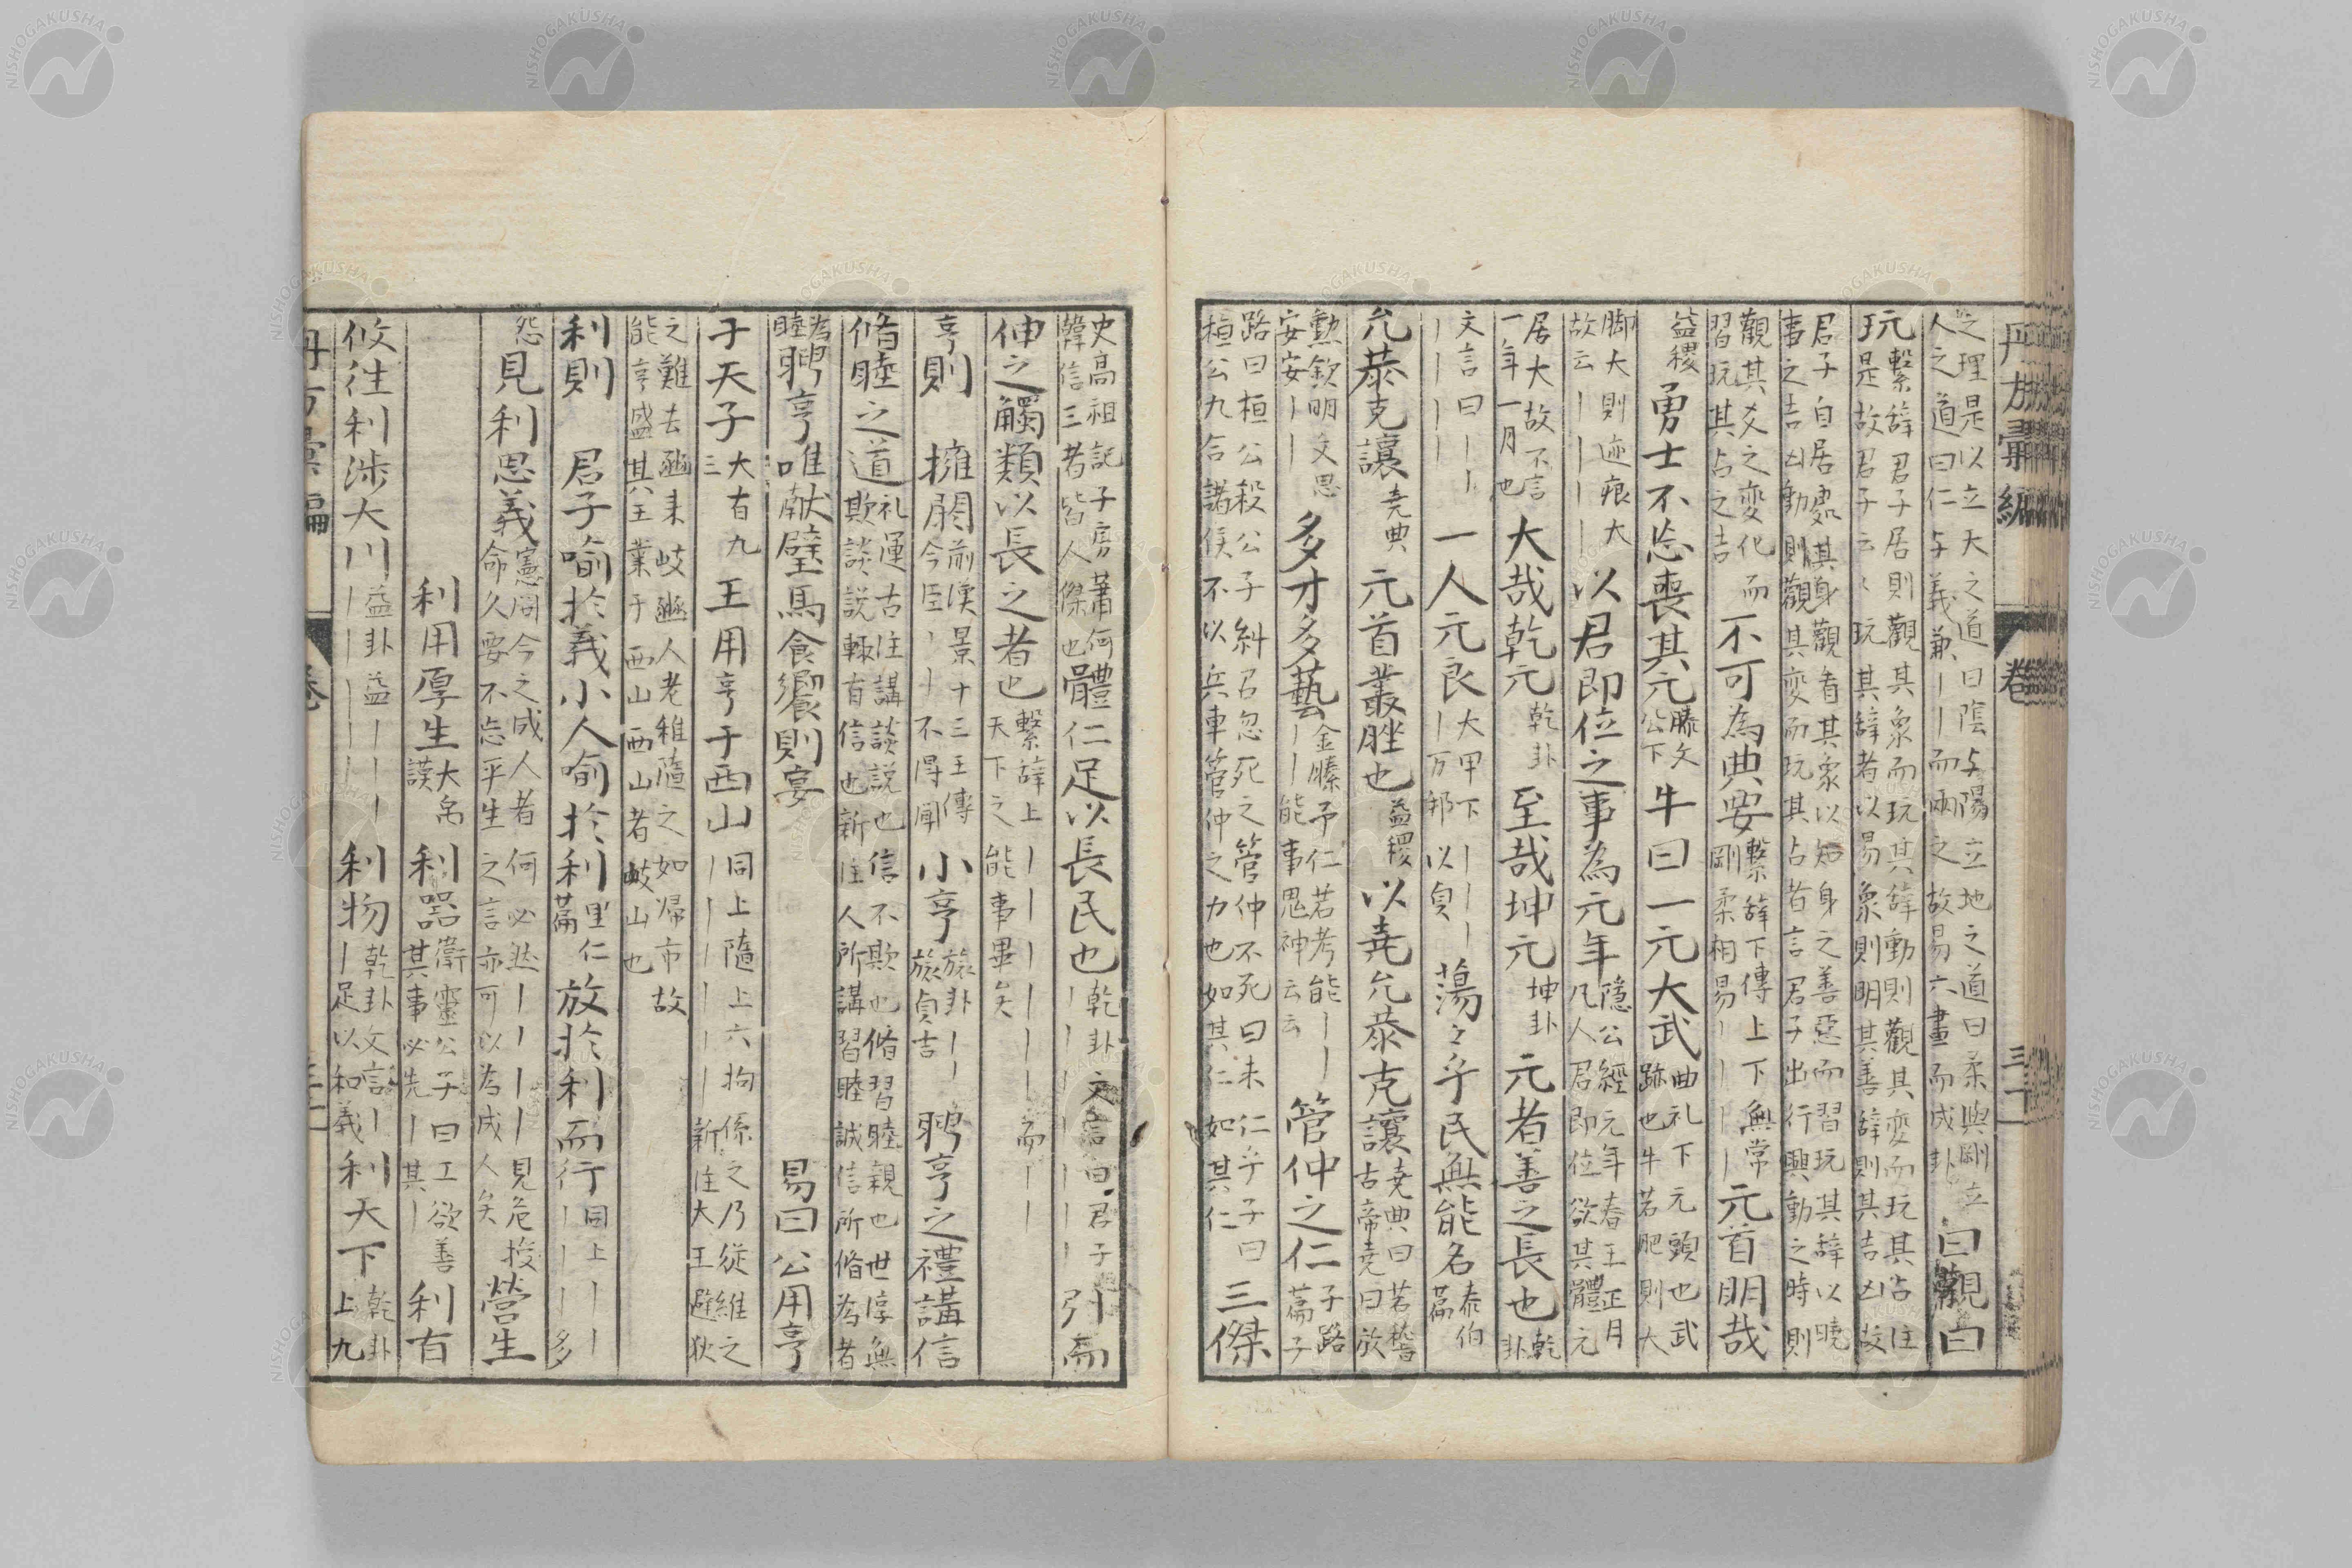 丹方彙編 卷 三十
之理是以立天之道曰陰与陽立地之道曰柔與剛立
人之道曰仁与義兼丨丨而兩之故易六畫而成卦
曰觀曰
玩
繋辞君子居則觀其象而玩其辞動則觀其変而玩其占住
是故君子云々玩其辞者以易象則明其善辞則其吉凶故
君子自居処其身觀看其象以知身之善惡而習玩其辞以曉
事之吉凶動則觀其変而玩其占者言君子出行興動之時則
觀其爻之変化而
習玩其占之吉
不可為典要
繋辞下傳上下無常
剛柔相易丨丨丨丨丨
元首明哉
益稷
勇士不忘喪其元
滕文
公下
牛曰一元大武
曲礼下元頭也武
跡也牛若肥則大
脚大則迹痕大
故云丨丨丨丨
以君即位之事為元年
隠公經元年春王正月
凡人君即位欲其體元
居大故不言
一年一月也
大哉乾元
乾卦
至哉坤元
坤卦
元者善之長也
乾
卦
文言曰丨丨丨
丨丨丨丨
一人元良
大甲下丨丨丨
丨万邦以貞
蕩々乎民無能名
泰伯
篇
允恭克讓
尭典
元首叢脞也
益稷
以尭允恭克讓
尭典曰若稽
古帝尭曰放
勲欽明文思
安安丨丨
多才多藝
金縢予仁若考能丨丨
丨丨能事鬼神云云
管仲之仁
子路
篇子
路曰桓公殺公子糾召忽死之管仲不死曰未仁乎子曰
桓公九合諸侯不以兵車管仲之力也如其仁如其仁
三傑
史高祖記子房蕭何
韓信三者皆人傑也
體仁足以長民也
乾卦文言曰君子
丨丨丨丨丨丨
引而
伸之觸類以長之者也
繋辞上丨丨丨丨丨而丨丨丨
天下之能事畢矣
亨則
擁閼
前漢景十三王傳
今臣丨丨丨不得聞
小亨
旅卦丨丨
旅貞吉
聘亨之禮講信
脩睦之道
礼運古注講談説也信不欺也脩習睦親也世淳無
欺談説輙有信也新注人所講習睦誠信所脩為者
為
睦
聘亨唯献璧馬食饗則宴
易曰公用亨
于天子
大有九
三
王用亨于西山
同上隨上六拘係之乃従維之
丨丨丨丨丨新注大王避狄
之難去豳来岐豳人老稚隨之如帰市故
能亨盛其王業于西山西山者岐山也
利則
君子喩於義小人喩於利
里仁
篇
放於利而行
同上丨丨丨
丨丨丨多
怨
見利思義
憲問今之成人者何必然丨丨丨丨見危授
命久要不忘平生之言亦可以為成人矣
營生
利用厚生
大禹
謨
利器
衛靈公子曰工欲善
其事必先丨其丨
利有
攸往利渉大川
益卦益丨丨丨
丨丨丨丨丨
利物
乾卦文言丨
丨足以和義
利天下
乾卦
上九
丹方彙編 卷 三十一
NISHOGAKUSHA